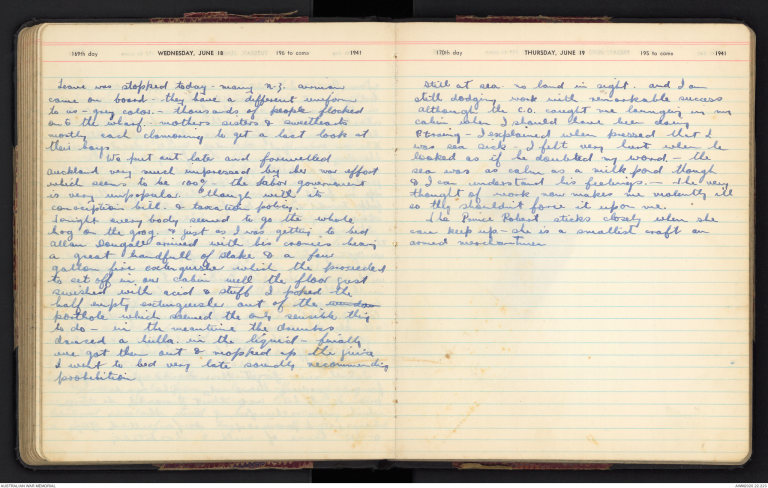 169th day WEDNESDAY, JUNE 18 196 to come 1941
Leave was stopped today - many N.Z. airmen
came on board - they have a different uniform
to us - grey color. - thousands of people flocked
onto the wharf - mothers sisters & sweethearts
mostly each clamouring to get a last look at
their boys.
We put out late and farewelled
Auckland very much impressed by her war effort
which seems to be 100% - the labor government
is very unpopular though with its
conscription bill & taxation policy.
Tonight everybody seemed to go the whole
hog on the grog. & just as I was getting to bed
Allan Dougall arrived with his cronies bearing
a great handfull of & a few
gallon fire extinguisher which they proceeded
to set off in our cabin well the floor just
swished with acid & stuff I poked the
half empty extinguisher out of the
porthole which seemed the only sensible thing
to do - in the meantime the drunks
danced a hulla in the liquid - finally
we got them out & mopped up the
I went to bed very late soundly recommending
prohibition
170th day THURSDAY, JUNE 19 195 to come 1941
Still at sea no land in sight. and I am
still dodging work with remarkable success
although the C.O. caught me lounging in my
cabin when I should have been doing
- I explained when pressed that I
was sea sick - I felt very hurt when he
looked as if he doubted my word. - the
sea was as calm as a milk pond though
& I can understand his feelings. - The very
thought of work now makes me violently ill
so they shouldn't force it upon me.
The Prince Robert sticks closely when she
can keep up - she is a smallish craft an
armed merchantman
AUSTRALIAN WAR MEMORIAL
AWM2020.22.223